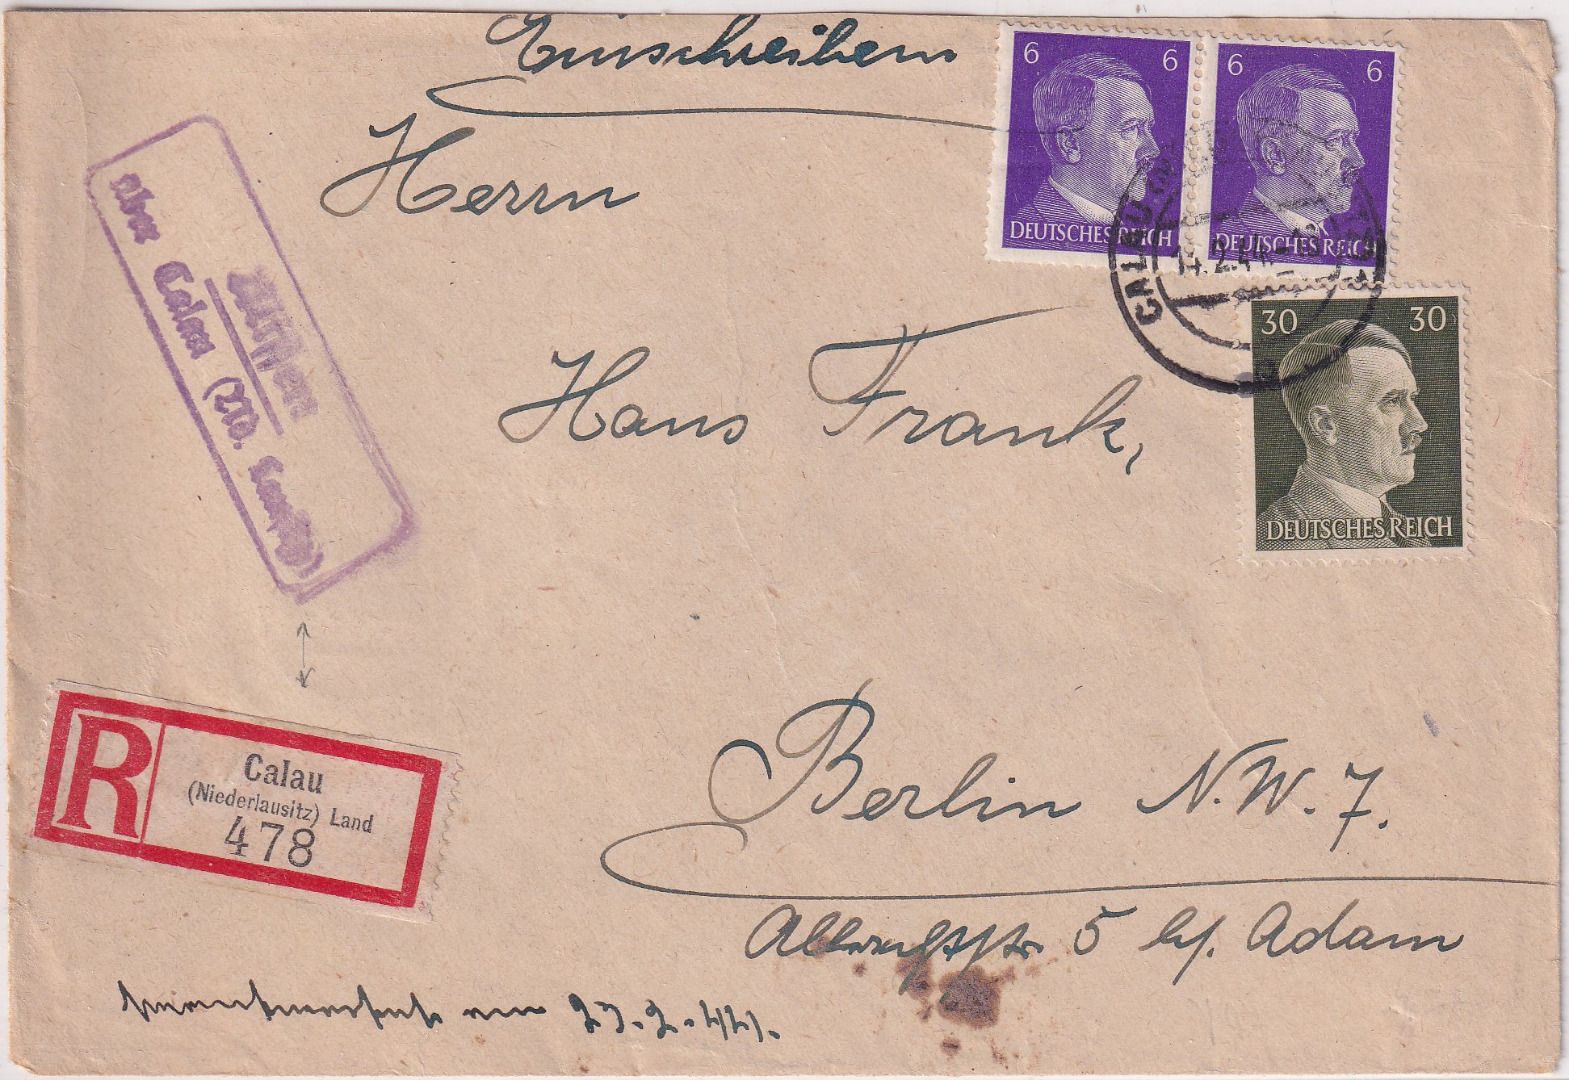 Einschreiben
6 6
DEUTSCHES REICH
6 6
DEUTSCHES REICH
CALAU
14.2.44
30 30
DEUTSCHES REICH
Herrn
Hans Frank,
über Calau (Nd. Lausitz)
R
Calau
(Niederlausitz) Land
478
Berlin N.W. 7.
Albrechtstr. 5 bf. Adam
am 23.2.44.